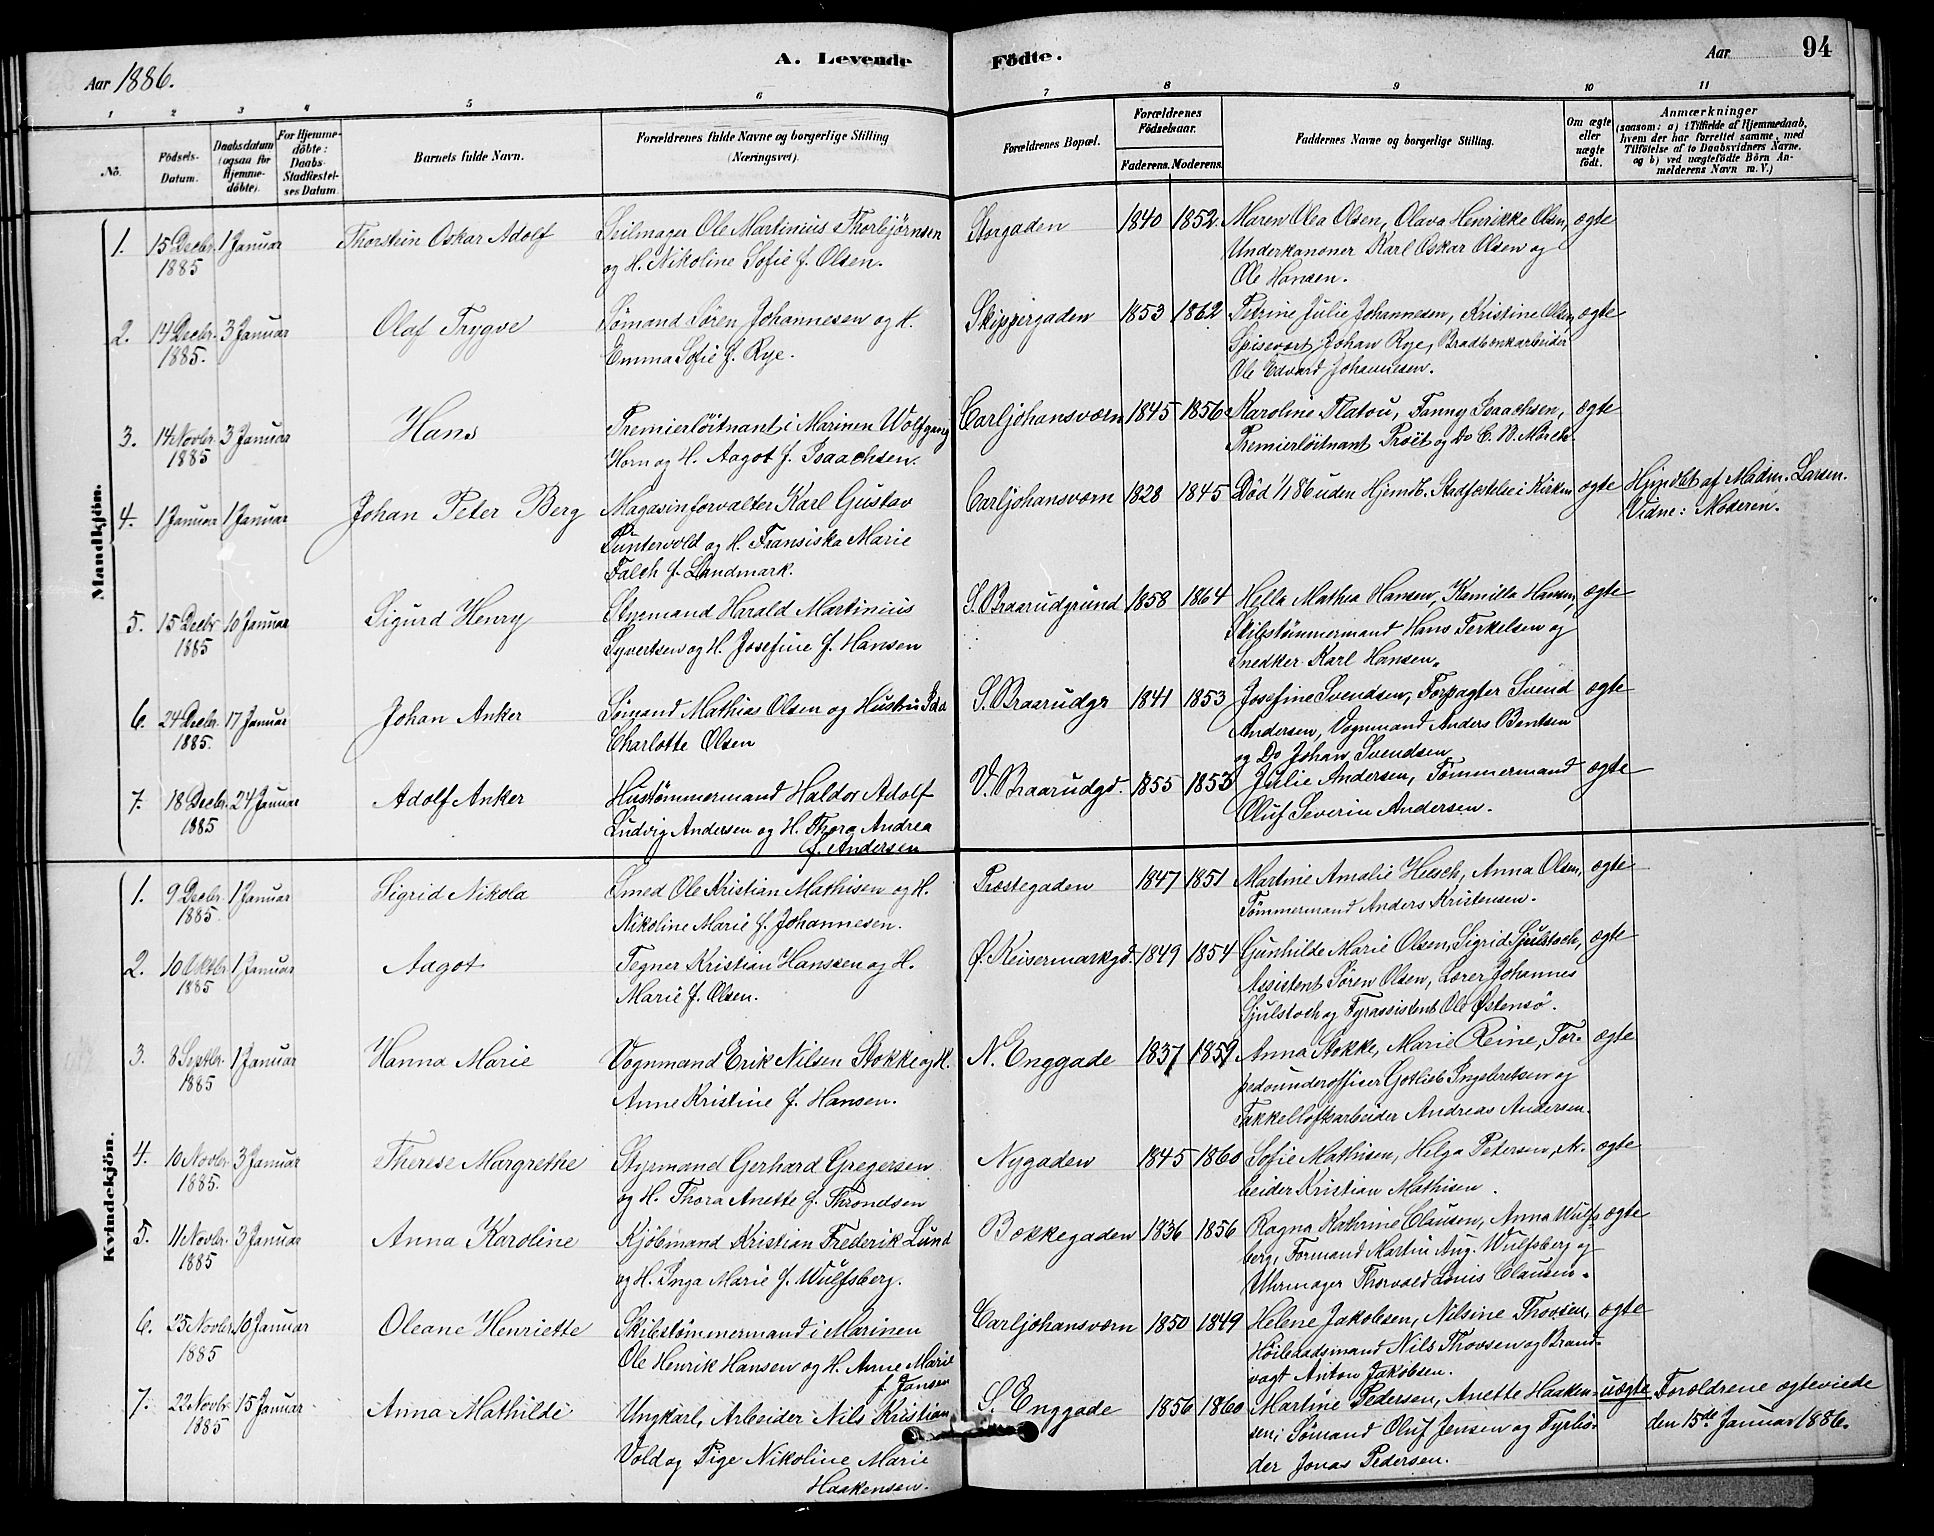 Aar 1886.
A. Levende
Födte.
Aar
94
1 2 3 4 5 6 7 8 9 10 11
No.
Födsels-Datum.
Daabsdatum (ogsaa for Hjemmedöbte).
For Hjemmedöbte: Daabs-Stadfæstelses Datum.
Barnets fulde Navn.
Forældrenes fulde Navne og borgerlige Stilling (Næringsvei).
Forældrenes Bopæl.
Forældrenes Födselsaar.
Faderens. Moderens.
Faddernes Navne og borgerlige Stilling.
Om ægte eller uægte født.
Anmærkninger
(saasom: a) i Tilfælde af Hjemmedaab, hvem der har forrettet samme, med Tilføielse af to Daabsvidners Navne, og b) ved uægtefødte Börn Anmelderens Navn m. V.)
Mandkjön.
1. 15 Decbr. 1885 1 Januar Thorstein Oskar Adolf
Seilmager Ole Martinius Thorbjørnsen
og H. Nikoline Sofie f. Olsen.
Storgaden 1840 1852
Maren Olea Olsen, Olava Henrikke Olsen,
Underkanoner Karl Oskar Olsen og
Ole Hansen.
ægte
2. 14 Decbr. 1885. 3 Januar Olaf Trygve
Sømand Søren Johannesen og H.
Emma Sofie f. Rye.
Skippergaden 1853 1862
Petrine Julie Johannesen, Kristine Olsen,
Spisevært Johan Rye, Bradbænkarbeider
Ole Edvard Johannesen.
ægte
3. 14 Novbr. 1885 3 Januar Hans
Premierløitnant i Marinen Wolfgang
Horn og H. Aagot f. Isaachsen.
Carljohansværn 1845 1856
Karoline Platou, Fanny Isaachsen,
Premierløitnant Prøit og Do C. B. Mørch.
ægte
4. 1 Januar 1 Januar Johan Peter Berg
Magasinforvalter Karl Gustav
Puntervold og H. Fransiska Marie
Falch f. Landmark.
Carljohansværn 1828 1845
Död 1/1 86 uden Hjemd. Stadfæstelse i Kirken
ægte
Hjmdbt af Madm. Larsen.
Vidne: Moderen.
5. 15 Decbr 1885 10 Januar Sigurd Henry
Styrmand Harald Martinius
Syvertsen og H. Josefine f. Hansen
S. Braarudgrund 1858 1864
Hella Mathea Hansen, Kamilla Hansen,
Skibstømmermand Hans Terkelsen og
Snedker Karl Hansen.
ægte
6. 24 Decbr. 1885. 17 Januar Johan Anker
Sømand Mathias Olsen og Hustru Ida
Charlotte Olsen
S. Braarudgr 1841 1853
Josefine Svendsen, Forpagter Svend
Andersen, Vognmand Anders Bentsen
og Do Johan Svendsen
ægte
7. 18 Decbr. 1885 24 Januar Adolf Anker
Hustømmermand Haldor Adolf
Ludvig Andersen og H. Thora Andrea
f. Andersen
V. Braarudgd. 1855 1853
Julie Andersen, Tømmermand
Oluf Severin Andersen.
ægte
Kvindekjön.
1. 9 Decbr. 1885. 1 Januar Sigrid Nikola
Smed Ole Kristian Mathisen og H.
Nikoline Marie f. Johannesen.
Præstegaden 1847 1851
Martine Amalie Hesch, Anna Olsen,
Tømmermand Anders Kristensen.
ægte
2. 10 Oktbr. 1885 1 Januar Aagot
Tegner Kristian Hanssen og H.
Marie f. Olsen.
Ø. Keisermarkgd. 1849 1854
Gunhilde Marie Olsen, Sigrid Sjulstoch,
Assistent Søren Olsen, Lærer Johannes
Sjulstoch og Fyrassistent Ole Østensø.
ægte
3. 8 Septbr. 1885 1 Januar Hanna Marie
Vognmand Erik Nilsen Stokke og H.
Anne Kristine f. Hansen.
N. Enggade 1837 1859
Anna Stokke, Marie Reine, Tor-
pedounderofficer Gotlieb Ingebretsen og
Takkelloftsarbeider Andreas Andersen.
ægte
4. 10 Novbr. 1885. 3 Januar Therese Margrethe
Styrmand Gerhard Gregersen
og H. Thora Anette f. Throndsen
Nygaden 1845 1860
Sofie Mathisen, Helga Petersen, Ar-
beider Kristian Mathisen.
ægte
5. 11 Novbr. 1885 3 Januar Anna Karoline
Kjöbmand Kristian Frederik Lund
og H. Inga Marie f. Wulfsberg.
Bakkegaden 1836 1856
Ragna Kathrine Clausen, Anna Wulfs-
berg, Formand Martin Aug. Wulfsberg og
Uhrmager Thorvald Louis Clausen.
ægte
6. 25 Novbr. 1885 10 Januar Oleane Henriette
Skibstømmermand i Marinen
Ole Henrik Hansen og H. Anne Marie
f. Jansen
Carljohansværn 1850 1849
Helene Jakobsen, Nilsine Thovsen,
Høibaadsmand Nils Thovsen og Brand-
vagt Anton Jakobsen.
ægte
7. 22 Novbr. 1885 15 Januar Anna Mathilde
Ungkarl, Arbeider Nils Kristian
Vold og Pige Nikoline Marie
Haakensen.
S. Enggade 1856 1860
Martine Pedersen, Anette Haaken-
sen, Sømand Oluf Jensen og Fyrbø-
der Jonas Pedersen.
uægte
Forældrene ægteviede
den 15de Januar 1886.